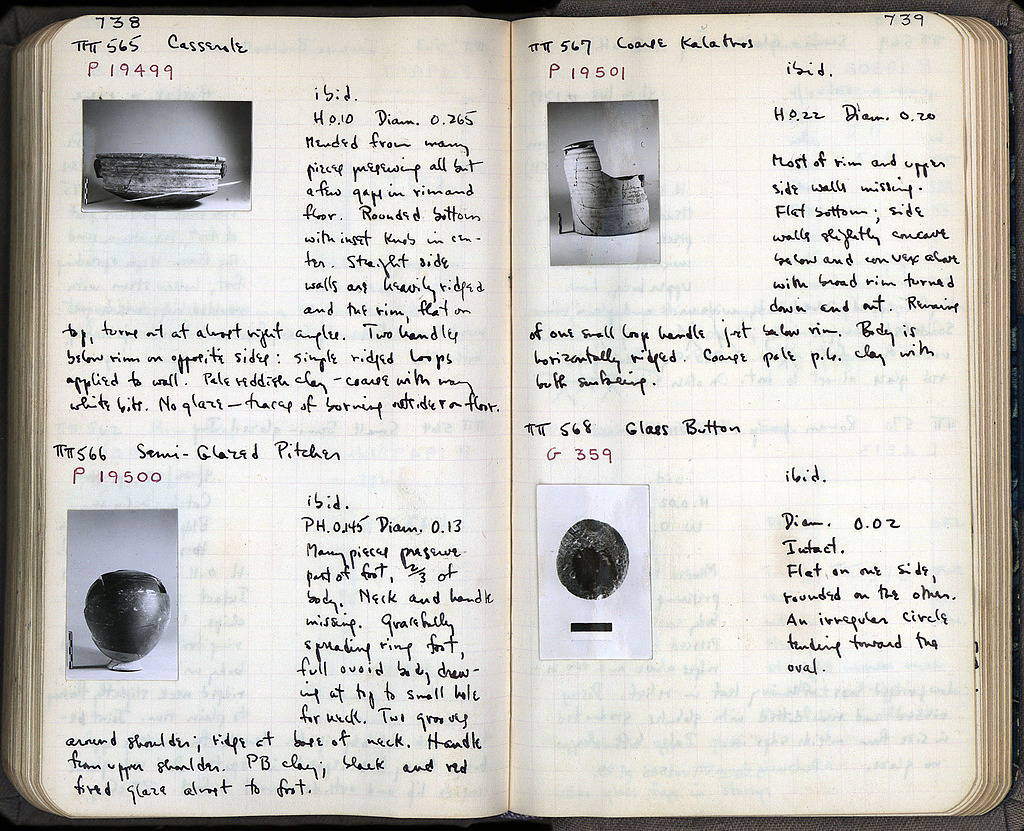 738
ΠΠ 565 Casserole
P 19499
ibid.
H 0.10 Diam. 0.265
Mended from many
pieces preserving all but
a few gaps in rim and
floor. Rounded bottom
with inset knob in cen-
ter. Straight side
walls are heavily ridged
and the rim, flat on
top, turns out at almost right angles. Two handles
below rim on opposite sides: single ridged loops
applied to wall. Pale reddish clay – coarse with many
white bits. No glaze – traces of burning outside + on floor.
ΠΠ 566 Semi-Glazed Pitcher
P 19500
ibid.
PH. 0.145 Diam. 0.13
Many pieces preserve
part of foot, 2/3 of
body. Neck and handle
missing. Gracefully
spreading ring foot,
full ovoid body draw-
ing at top to small hole
for neck. Two grooves
around shoulder; ridge at base of neck. Handle
from upper shoulder. PB clay; black and red
fired glaze almost to foot.
739
ΠΠ 567 Coarse Kalathos
P 19501
ibid.
H 0.22 Diam. 0.20
Most of rim and upper
side walls missing.
Flat bottom; side
walls slightly concave
below and convex above
with broad rim turned
down and out. Remains
of one small loop handle just below rim. Body is
horizontally ridged. Coarse pale p.b. clay with
buff surfacing.
ΠΠ 568 Glass Button
G 359
ibid.
Diam. 0.02
Intact.
Flat, on one side,
rounded on the other.
An irregular circle
tending toward the
oval.